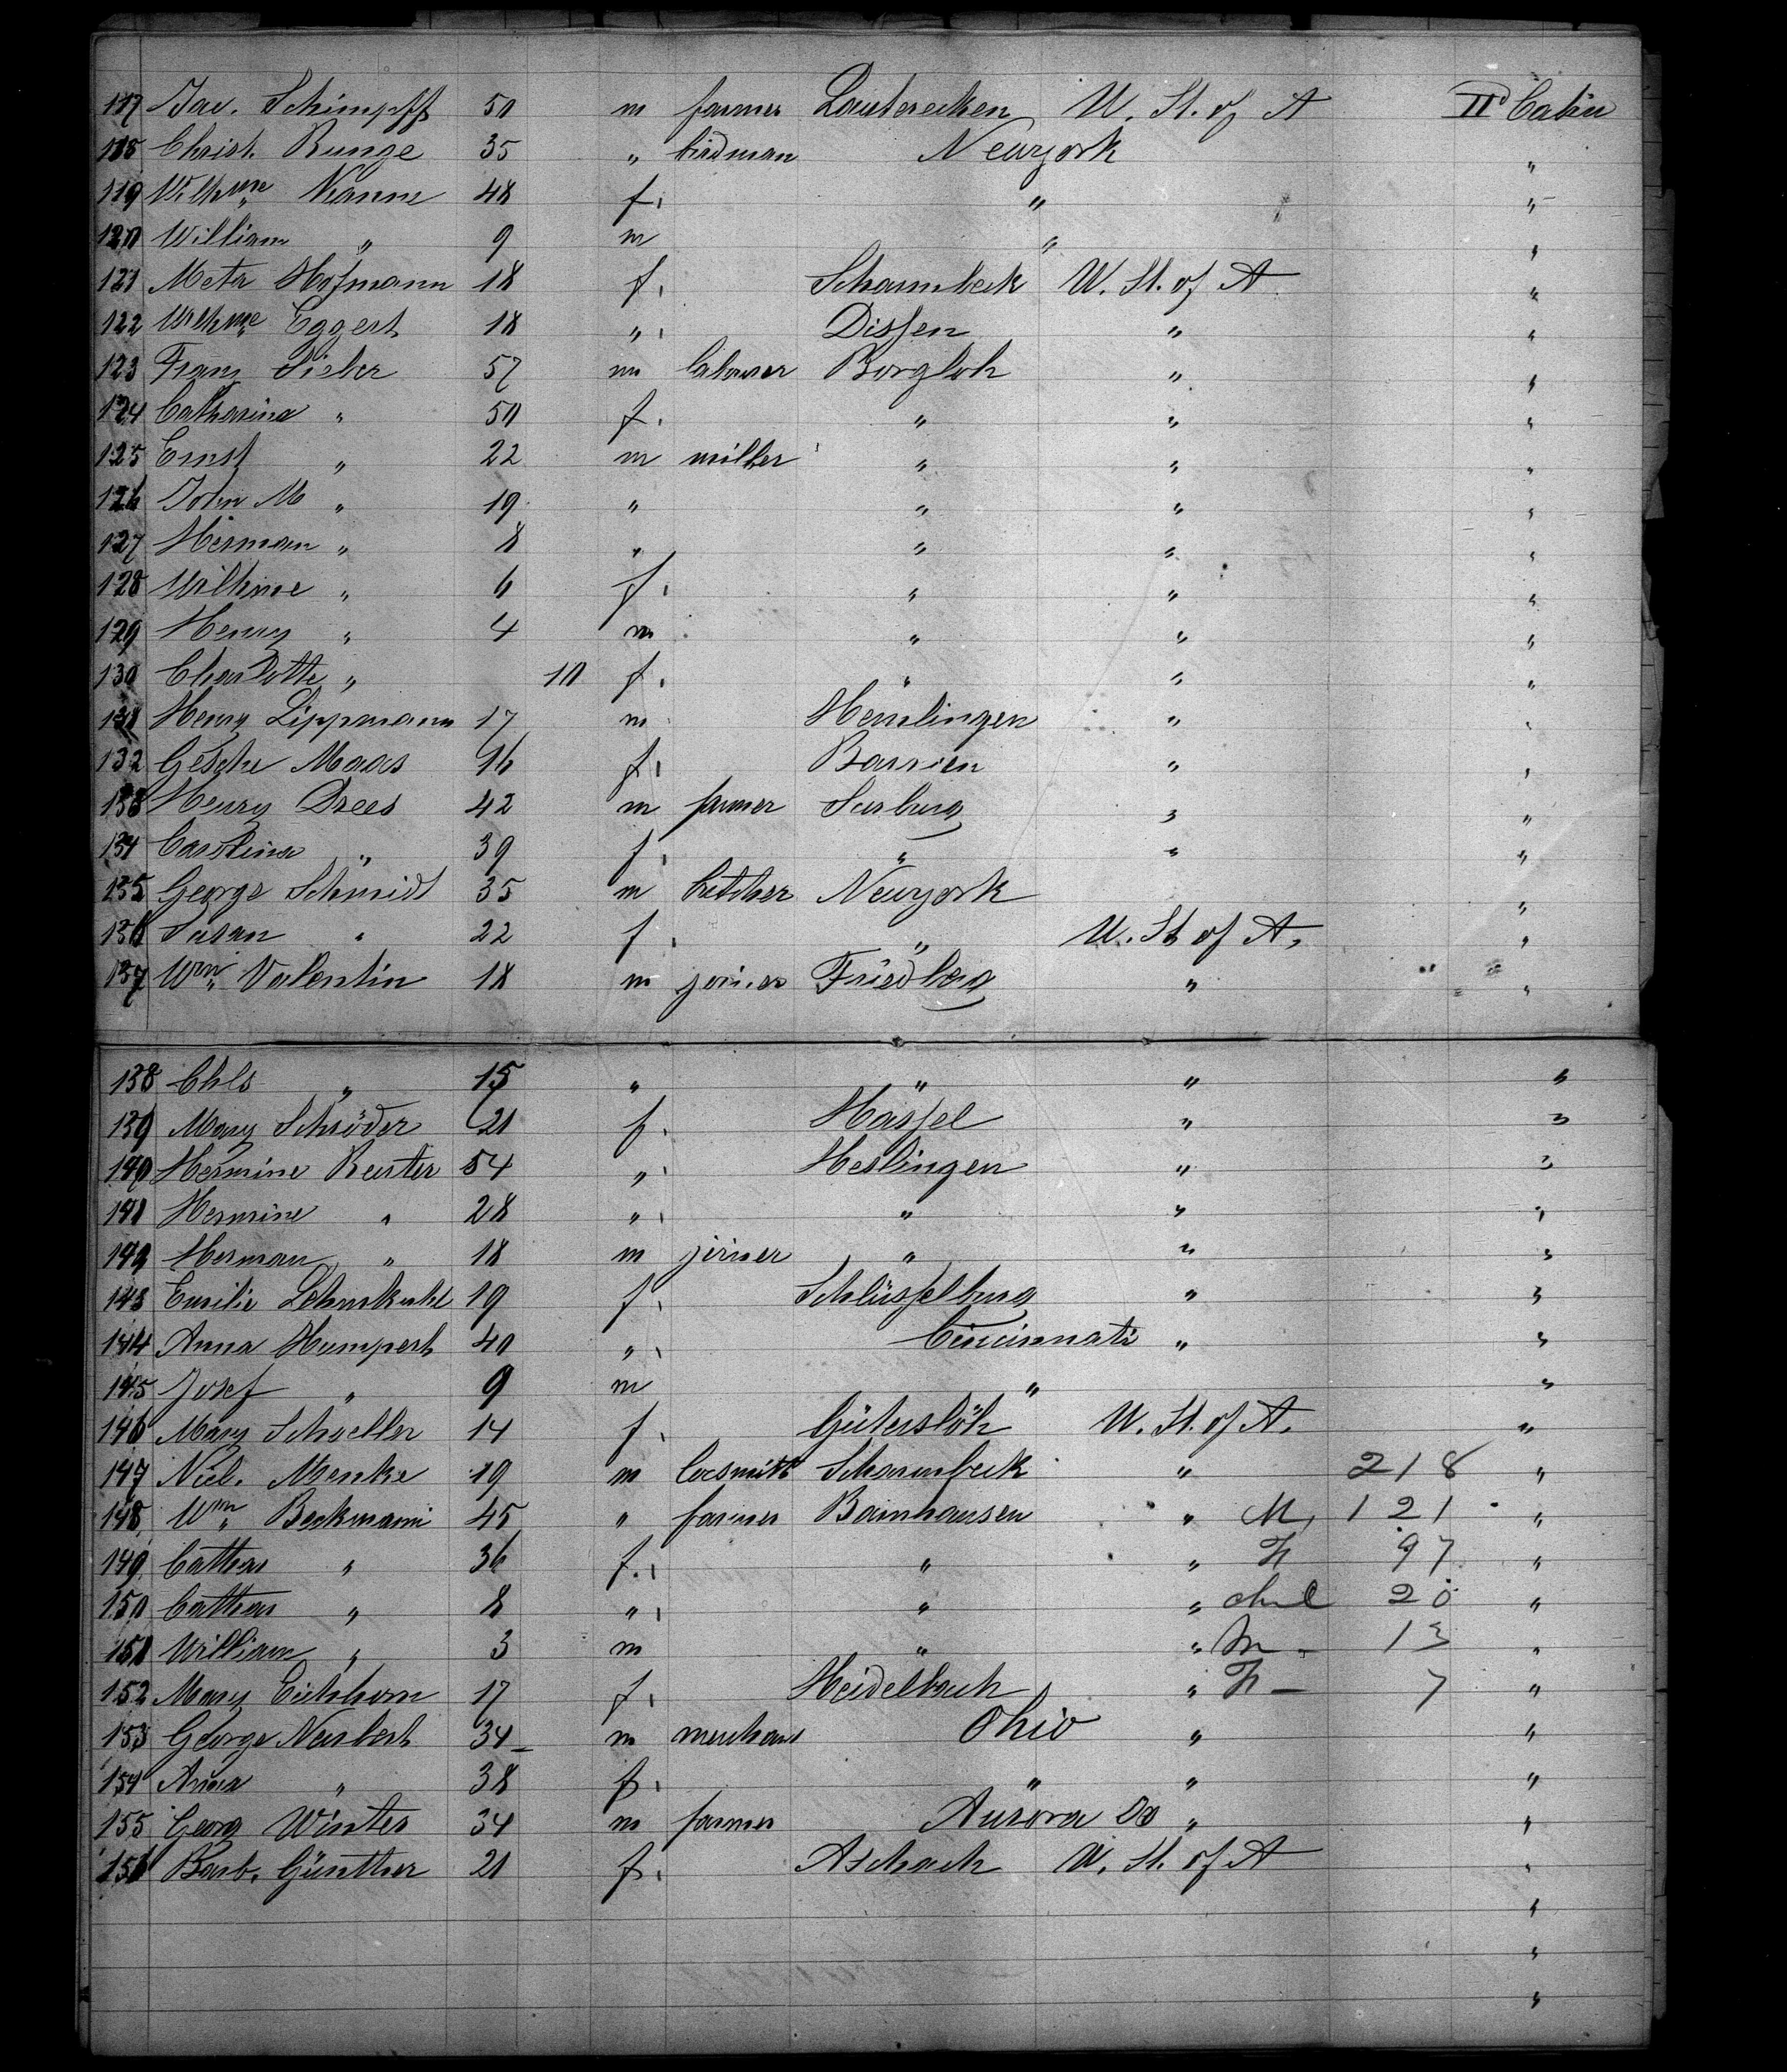 117 Jac. Schimpff 50 m farmer Lauterecken U. St. of A IId Cabin
118 Christ. Runge 35 " birdman Newyork "
119 Wilhme Nanne 48 f. " "
120 William " 9 m " "
121 Meta Hofmann 18 f. Scharmbeck U. St. of A "
122 Wilhme Eggert 18 " Dissen " "
123 Franz Sieker 57 m labourer Borgloh " "
124 Catharina " 50 f. " " "
125 Ernst " 22 m miller " " "
126 John M " 19 " " " "
127 Herman " 8 " " " "
128 Wilhme " 6 f. " " "
129 Henry " 4 m " " "
130 Charlotte " 10 f. " " "
131 Henry Lippmann 17 m Hemlingen " "
132 Gesche Maas 16 f. Barrien " "
133 Henry Drees 42 m farmer " "
134 Carolina " 39 f. " " "
135 George Schmidt 35 m butcher Newyork "
136 Susan " 22 f. " U. St. of A. "
137 Wm Valentin 18 m joiner Friedberg " "
138 Chls " 15 " " " "
139 Mary Schröder 21 f. Hassel " "
140 Hermine Reuter 54 " Heslingen " "
141 Hermine " 28 " " " "
142 Herman " 18 m joiner " " "
143 Emilie Lehmkuhl 19 f. Schlüsselburg " "
144 Anna Humpert 40 " Cincinnati " "
145 Josef " 9 m " "
146 Mary Schoeller 14 f. Gütersloh U. St. of A. "
147 Nicl. Menke 19 m locsmith Scharmbeck " 218 "
148 Wm Beckmann 45 " farmer Bamhausen " M, 121 "
149 Cathar " 36 f. " " F 97 "
150 Cathar " 8 " " " chil 20 "
151 William " 3 m " " M - 13 "
152 Mary Eichhorn 17 f. Heidelbach " F - 7 "
153 George Neubert 34 m merchant Ohio " "
154 Anna " 38 f. " " "
155 Georg Winter 34 m farmer Aurora " "
156 Barb. Günther 21 f. Aschach U. St. of A "
"
"
"